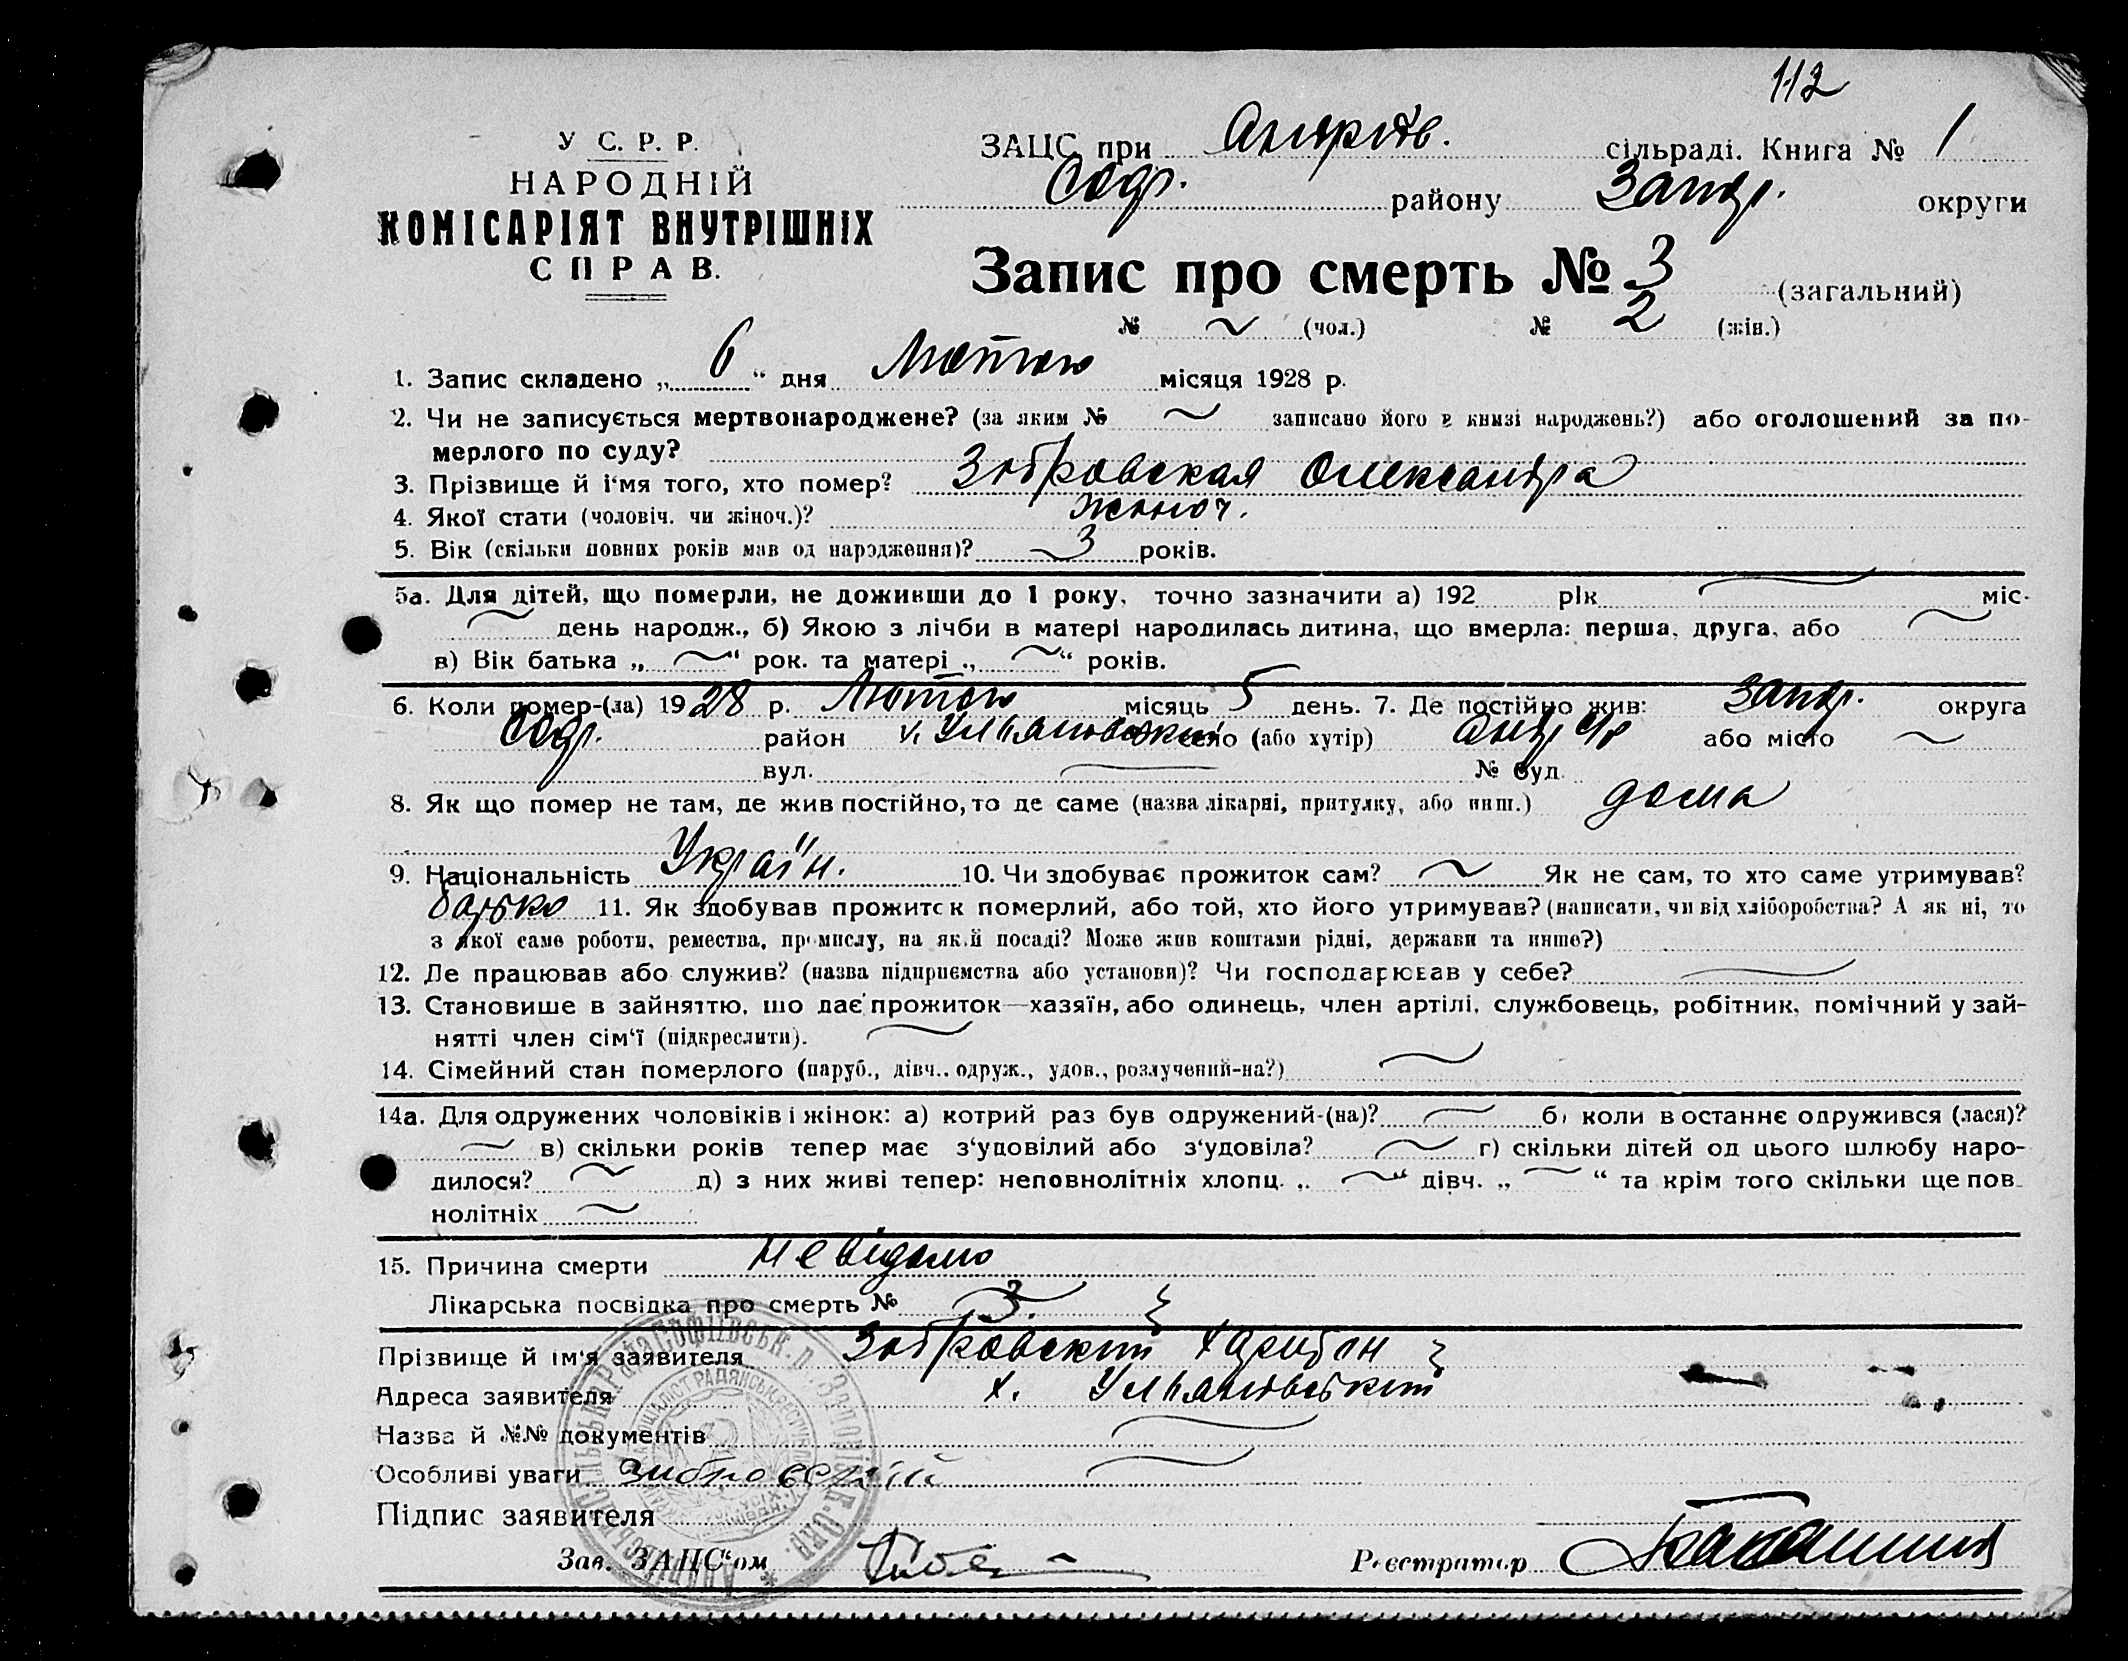 112
У С. Р. Р.
НАРОДНІЙ
КОМІСАРІЯТ ВНУТРІШНІХ
СПРАВ.
ЗАЦС при сільраді. Книга № 1
Соф. району Запор. округи
Запис про смерть № 3 (загальний)
№ ~ (чол.) № 2 (жін.)
1. Запис складено „ 6 “ дня Лютого місяця 1928 р.
2. Чи не записується мертвонароджене? (за яким № ~ записано його в книзі народжень?) або оголошений за по-
мерлого по суду?
3. Прізвище й і‘мя того, хто помер? Олександра
4. Якої стати (чоловіч. чи жіноч.)? жіноч.
5. Вік (скільки повних років мав од народження)? 3 років.
5а. Для дітей, що померли, не доживши до 1 року, точно зазначити а) 192 рік міс.
день народж., б) Якою з лічби в матері народилась дитина, що вмерла: перша, друга, або
в) Вік батька „ ~ “ рок. та матері „ ~ “ років.
6. Коли помер-(ла) 1928 р. Лютого місяць 5 день. 7. Де постійно жив: Запор. округа
Соф. район село (або хутір) або місто ~
вул. № буд.
8. Як що помер не там, де жив постійно, то де саме (назва лікарні, притулку, або инш.) дома
9. Національність Україн. 10. Чи здобуває прожиток сам? ~ Як не сам, то хто саме утримував?
батько 11. Як здобував прожиток померлий, або той, хто його утримував? (написати, чи від хліборобства? А як ні, то
з якої саме роботи, ремества, промислу, на якій посаді? Може жив коштами рідні, держави та инше?)
12. Де працював або служив? (назва підприємства або установи)? Чи господарював у себе?
13. Становище в зайняттю, що дає прожиток—хазяїн, або одинець, член артілі, службовець, робітник, помічний у зай-
нятті член сім‘ї (підкреслити).
14. Сімейний стан померлого (паруб., дівч., одруж., удов., розлучений-на?)
14а. Для одружених чоловіків і жінок: а) котрий раз був одружений-(на)? б) коли в останнє одружився (лася)?
в) скільки років тепер має з‘удовілий або з‘удовіла? г) скільки дітей од цього шлюбу наро-
дилося? д) з них живі тепер: неповнолітніх хлопц. „ ~ “ дівч. „ ~ “ та крім того скільки ще пов-
нолітніх
15. Причина смерти невідомо
Лікарська посвідка про смерть № 3.
Прізвище й ім‘я заявителя
Адреса заявителя х. Ульяновський
Назва й №№ документів
Особливі уваги
Підпис заявителя
Зав. ЗАЦС‘ом Реєстратор